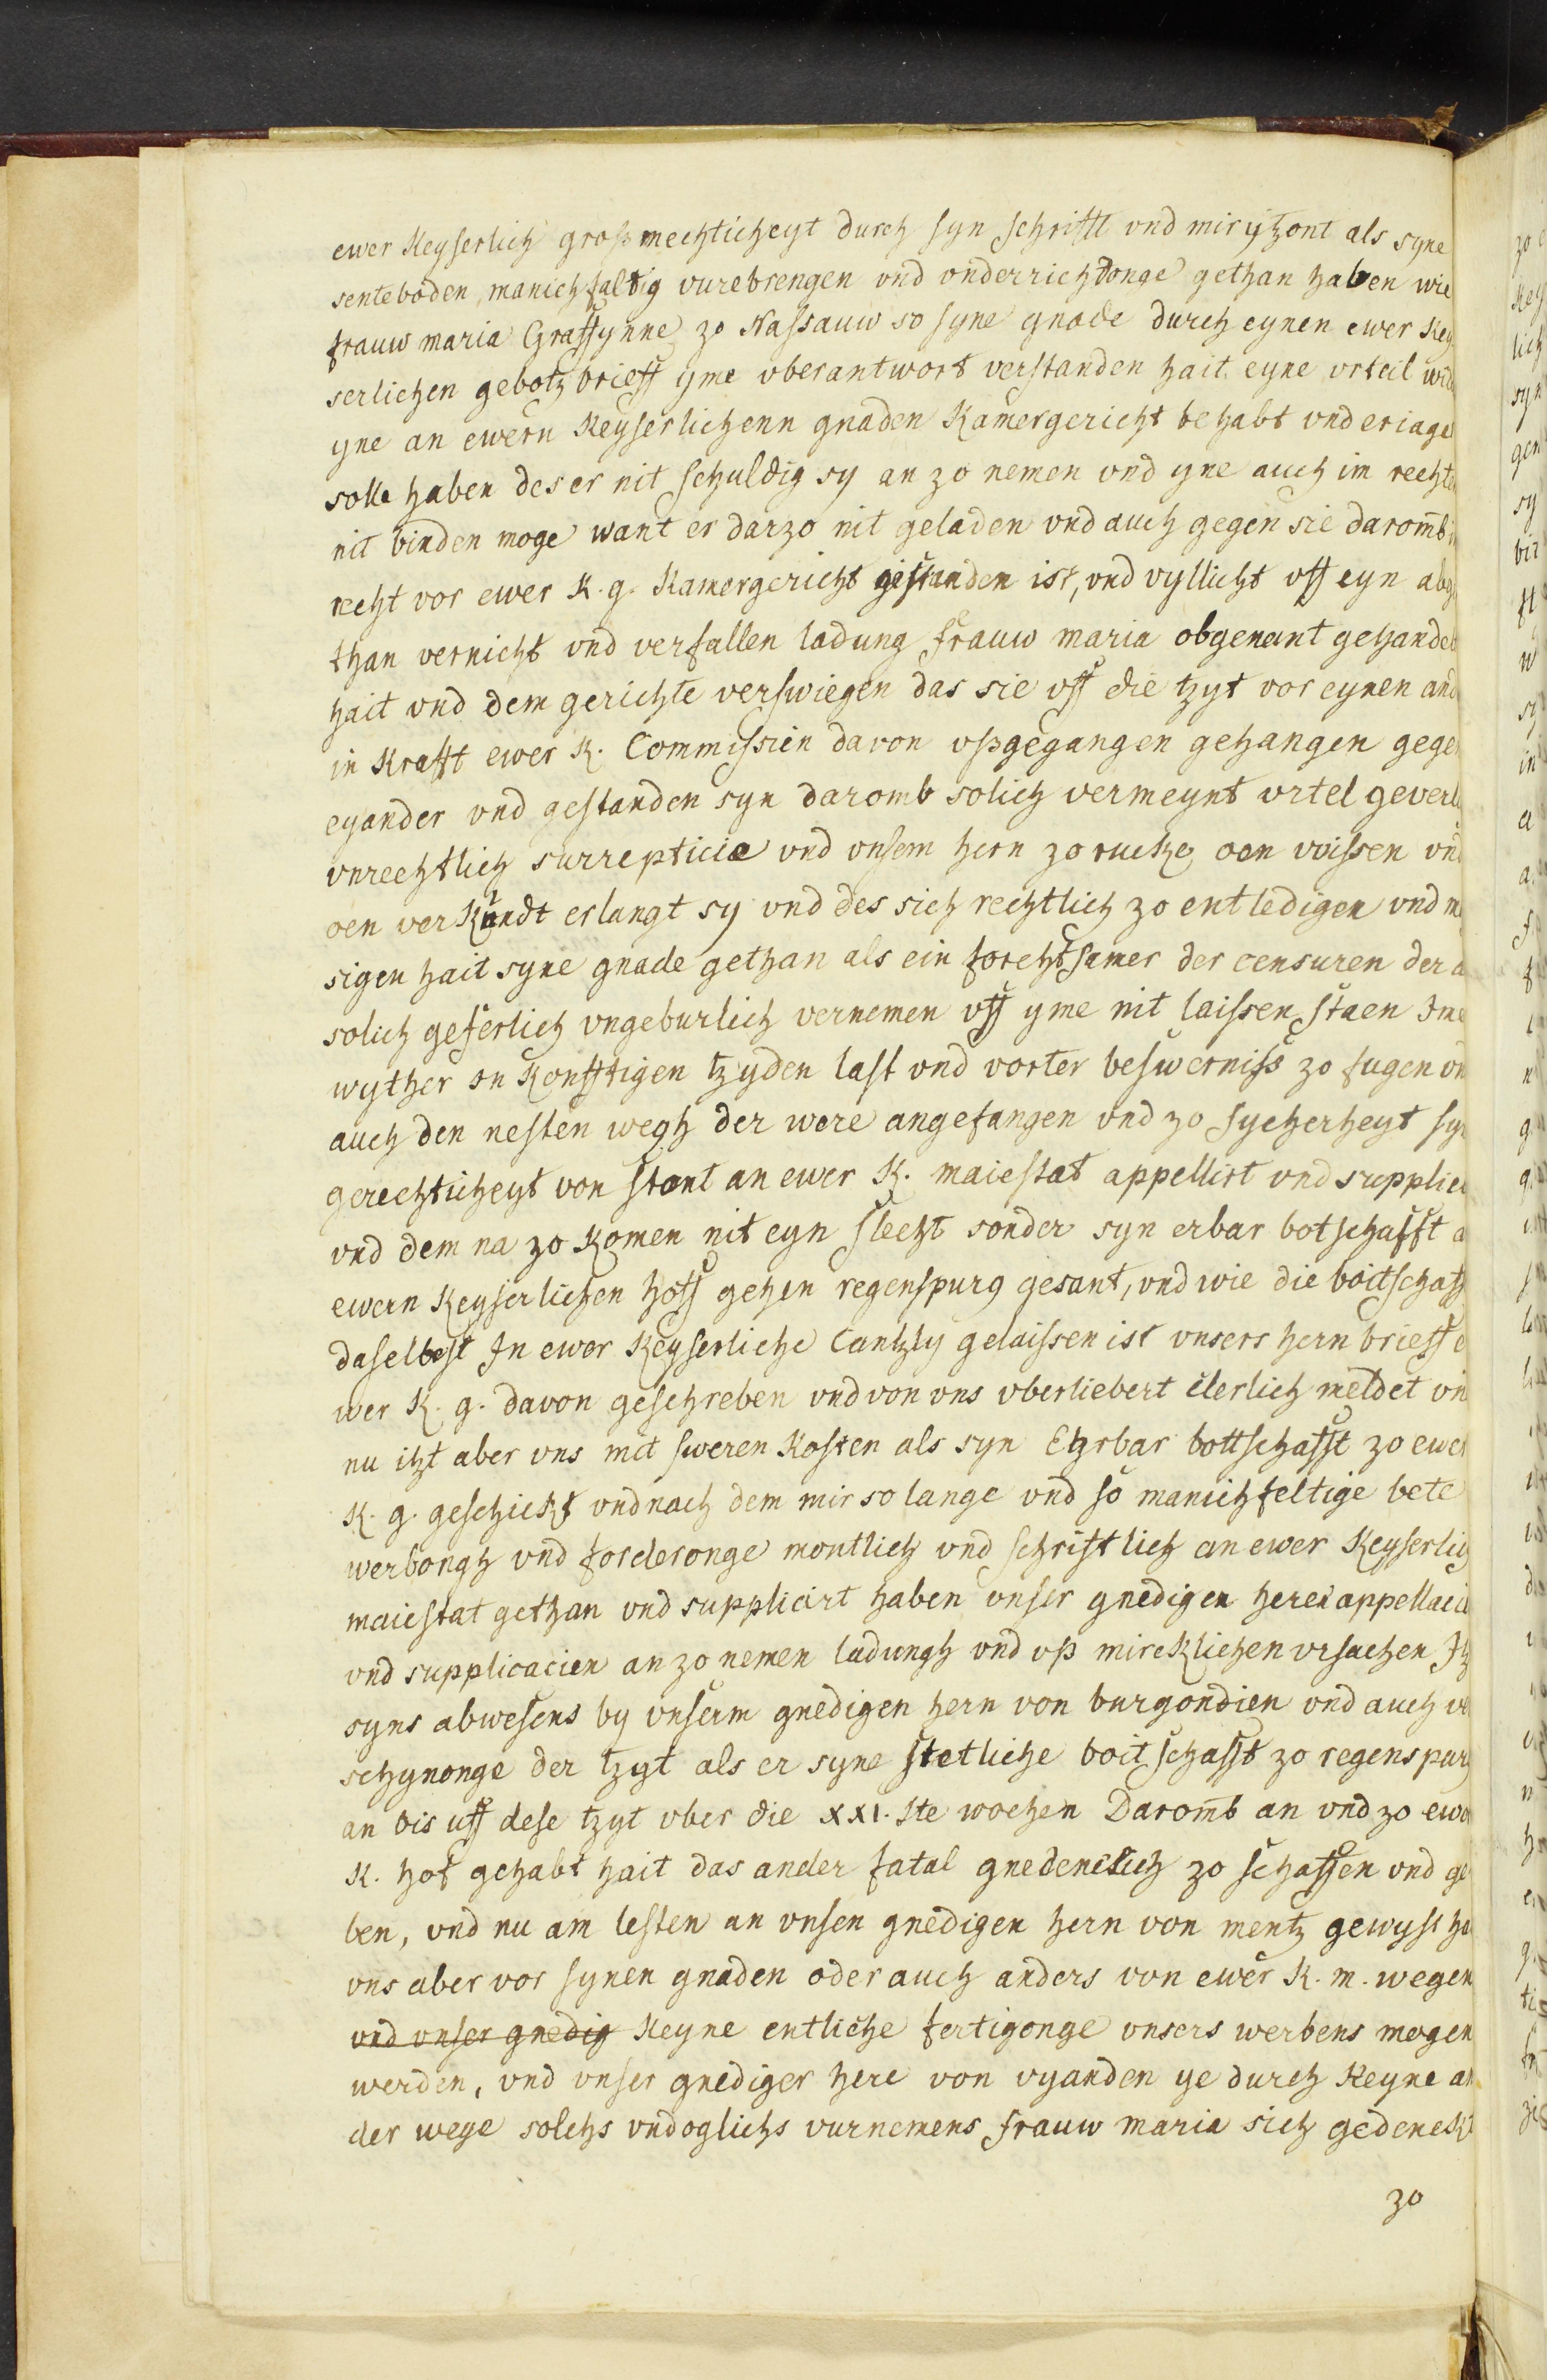 ewer Keyserlich grosmechticheyt durch syn schrifft vnd mir ytzont als syne
senteboden manichfaltig vurebrengen vnd vnderrichtonge gethan haben wie
frauw maria Graffynne zo Nassauw so syne gnade durch eynen ewer Key
serlichen gebotzbrieff yme vberantwort verstanden hait eyne vrteil wid
yne an ewern Keyserlichenn gnaden Kamergericht behabt vnd eriage
solle haben des er nit schuldig sy an zo nemen vnd yne auch im rechte
nit binden moge want er darzo nit geladen vnd auch gegen sie daromb i
recht vor ewer K. g. Kamergericht gestanden ist, vnd vyllicht vff eyn abg
than vernicht vnd verfallen ladung frauw maria obgenant gehandel
hait vnd dem gerichte verswiegen das sie vff die tzyt vor eynen and
in Krafft ewer K. Commissien davon vßgegangen gehangen gege
eyander vnd gestanden syn daromb solich vermeynt vrtel geverl
vnrechtlich surrepticie vnd vnsem hern zo rucke oen wissen vnd
oen verkundt erlangt sy vnd des sich rechtlich zo entledigen vnd m
sigen hait syne gnade gethan als ein forchtsamer der censuren der a
solich geferlich vngeburlich vernemen vff yme nit laissen staen Ime
wyther in Konfftigen tzyden last vnd vorter beswerniss zo fugen vn
auch den nesten wegh der were angefangen vnd zo sycherheyt syn
gerechticheyt von stont an ewer K. maiestat appellirt vnd supplici
vnd dem na zo Komen nit eyn slecht sonder syn erbar botschafft a
ewern Keyserlichen hoff gehen regenspurg gesant, vnd wie die boitschaff
daselbest In ewer Keyserliche Cantzly gelaissen ist vnsers hern brieff e
wer K. g. davon geschreben vnd von vns vberliebert clerlich meldet vn
nu itzt aber vns mit sweren Kosten als syn Ehrbar bottschafft zo ewer
K. g. geschickt vnd nach dem mir so lange vnd so manichfeltige bete
werbongh vnd forderonge montlich vnd schriftlich an ewer Keyserlig
maiestat gethan vnd supplicirt haben vnser gnedigen heren appellaci
vnd supplicacien an zo nemen ladungh vnd vß mircklichen vrsachen Itz
syns abwesens by vnserm gnedigen hern von burgondien vnd auch ve
schynonge der tzyt als er syne stetliche boitschafft zo regenspurg
an bis uff dese tzyt vber die XXI. ste wochen Daromb an vnd zo ewer
K. hof gehabt hait das ander fatal gnedenclich zo schaffen vnd ge
ben, vnd nu am lesten an vnsen gnedigen hern von mentz gewyst ha
vns aber vor synen gnaden oder auch anders von ewer K. m. wegen
vnd vnser gnedig Keyne entliche fertigonge vnsers werbens mogen
werden, vnd vnser gnediger here von vyanden ye durch Keyne an
der wege solchs vndoglichs vurnemens frauw maria sich gedenckt
zo